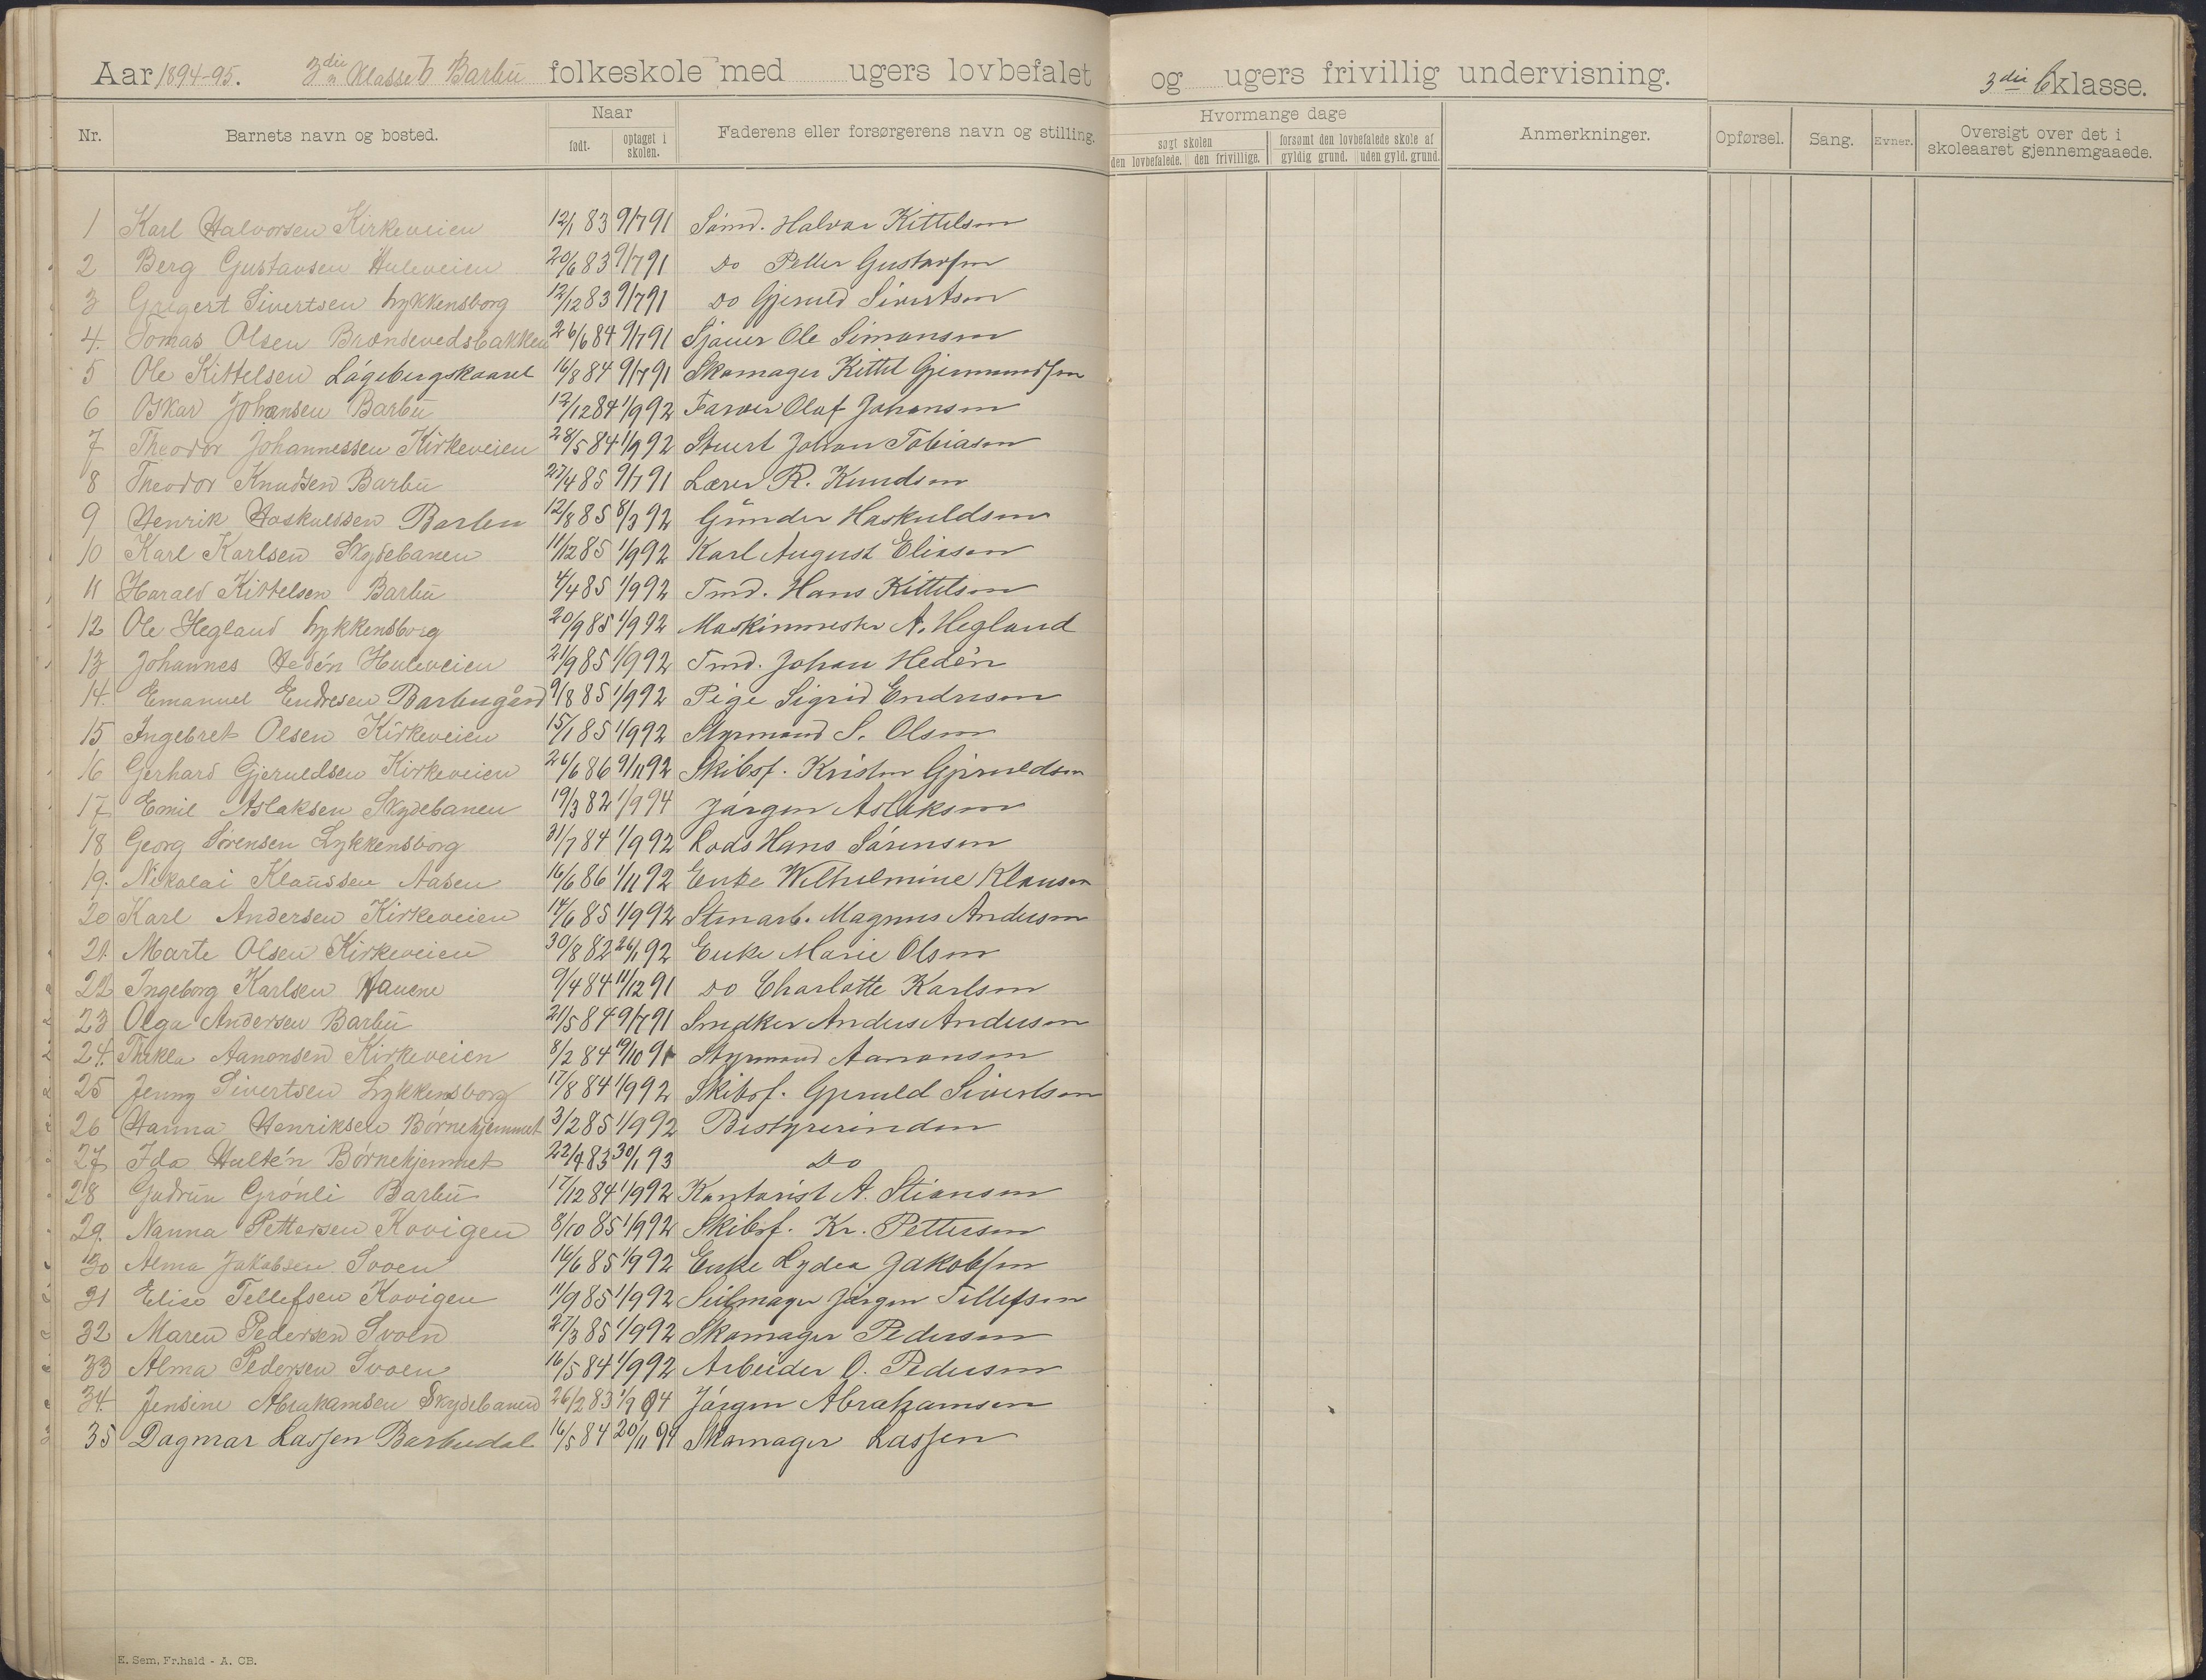 Aar 1894-95. 3die Klasse b Barbu folkeskole med ugers lovbefalet og ugers frivillig undervisning. 3die b klasse.
Nr. Barnets navn og bosted. Naar født. optaget i skolen. Faderens eller forsørgerens navn og stilling. Hvormange dage søgt skolen den lovbefalede. den frivillige. forsømt den lovbefalede skole af gyldig grund. uden gyld. grund. Anmerkninger. Opførsel. Sang. Evner. Oversigt over det i skoleaaret gjennemgaaede.
1 Karl Halvorsen Kirkeveien 12/1 83 9/7 91 Sømd. Halvor Kittelsen
2 Berg Gustavsen Huleveien 20/6 83 9/7 91 Do Petter Gustavsen
3 Gregert Sivertsen Lykkensborg 12/12 83 9/7 91 Do Gjeruld Sivertsen
4. Tomas Olsen Brændevedsbakken 26/6 84 9/7 91 Sjauer Ole Simonsen
5 Ole Kittelsen Lágebergskaaret 16/8 84 9/7 91 Skomager Kittel Gjermundsen
6 Oskar Johansen Barbu 12/12 84 1/9 92 Farver Oluf Johansen
7 Theodor Johannessen Kirkeveien 28/5 84 1/9 92 Stuert Johan Tobiasen
8 Theodor Knudsen Barbu 27/4 85 9/7 91 Lærer R. Knudsen
9 Henrik Haskuldsen Barbu 12/8 85 8/3 92 Gunder Haskuldsen
10 Karl Karlsen Skydebanen 11/12 85 1/9 92 Karl August Eliasen
11 Harald Kittelsen Barbu 4/4 85 1/9 92 Tmd. Hans Kittelsen
12 Ole Hegland Lykkensborg 20/9 85 1/9 92 Maskinmester A. Hegland
13 Johannes Hedén Huleveien 21/9 85 1/9 92 Tmd. Johan Hedén
14. Emanuel Endresen Barbugård 9/8 85 1/9 92 Pige Sigrid Endresen
15 Ingebret Olsen Kirkeveien 15/1 85 1/9 92 Styrmand S. Olsen
16 Gerhard Gjeruldsen Kirkeveien 26/6 86 9/11 92 Skibsf. Kristen Gjeruldsen
17 Emil Aslaksen Skydebanen 19/3 82 1/9 94 Jørgen Aslaksen
18 Georg Sørensen Lykkensborg 31/7 84 1/9 92 Lods Hans Sørensen
19. Nikolai Klaussen Aasen 16/6 86 1/11 92 Enke Wilhelmine Klausen
20 Karl Andersen Kirkeveien 14/6 85 1/9 92 Stenarb. Magnus Andersen
21. Marte Olsen Kirkeveien 30/8 82 26/1 92 Enke Marie Olsen
22 Ingeborg Karlsen Hauene 9/4 84 11/12 91 Do Charlotte Karlsen
23 Olga Andersen Barbu 21/5 84 9/7 91 Snedker Anders Andersen
24. Thekla Aanonsen Kirkeveien 8/2 84 19/10 91 Styrmand Aanonsen
25 Jenny Sivertsen Lykkensborg 17/8 84 1/9 92 Skibsf. Gjeruld Sivertsen
26 Hanna Henriksen Børnehjemmet 3/2 85 1/9 92 Bestyrerinden
27 Ida Hultén Børnehjemmet 22/4 83 30/1 93 Do
28 Gudrun Grønli Barbu 17/12 84 1/9 92 Kontorist A. Stiansen
29. Nanna Pettersen Kovigen 8/10 85 1/9 92 Skibsf. Kr. Pettersen
30 Alma Jakobsen Svoen 16/6 85 1/9 92 Enke Lydea Jakobsen
31 Elise Tellefsen Kovigen 11/9 85 1/9 92 Seilmager Jørgen Tellefsen
32 Maren Pedersen Svoen 27/3 85 1/9 92 Skomager Pedersen
33 Alma Pedersen Svoen 16/5 84 1/9 92 Arbeider O. Pedersen
34. Jensine Abrahamsen Skydebanen 26/2 83 1/9 94 Jørgen Abrahamsen
35 Dagmar Lassen Barbudal 16/5 84 20/11 94 Skomager Lassen
E. Sem, Fr.hald - A. CB.